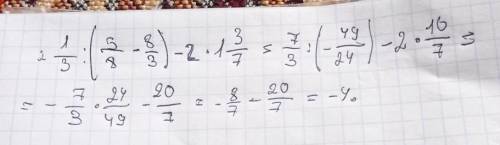 2 1/3 : (5/8 - 8/3) - 2 · 1 3/7 = 7/3 : (-49/24) - 2 · 10/7 =
= - 7/3 · 24/49 - 20/7 = - 8/7 - 20/7 = -4.